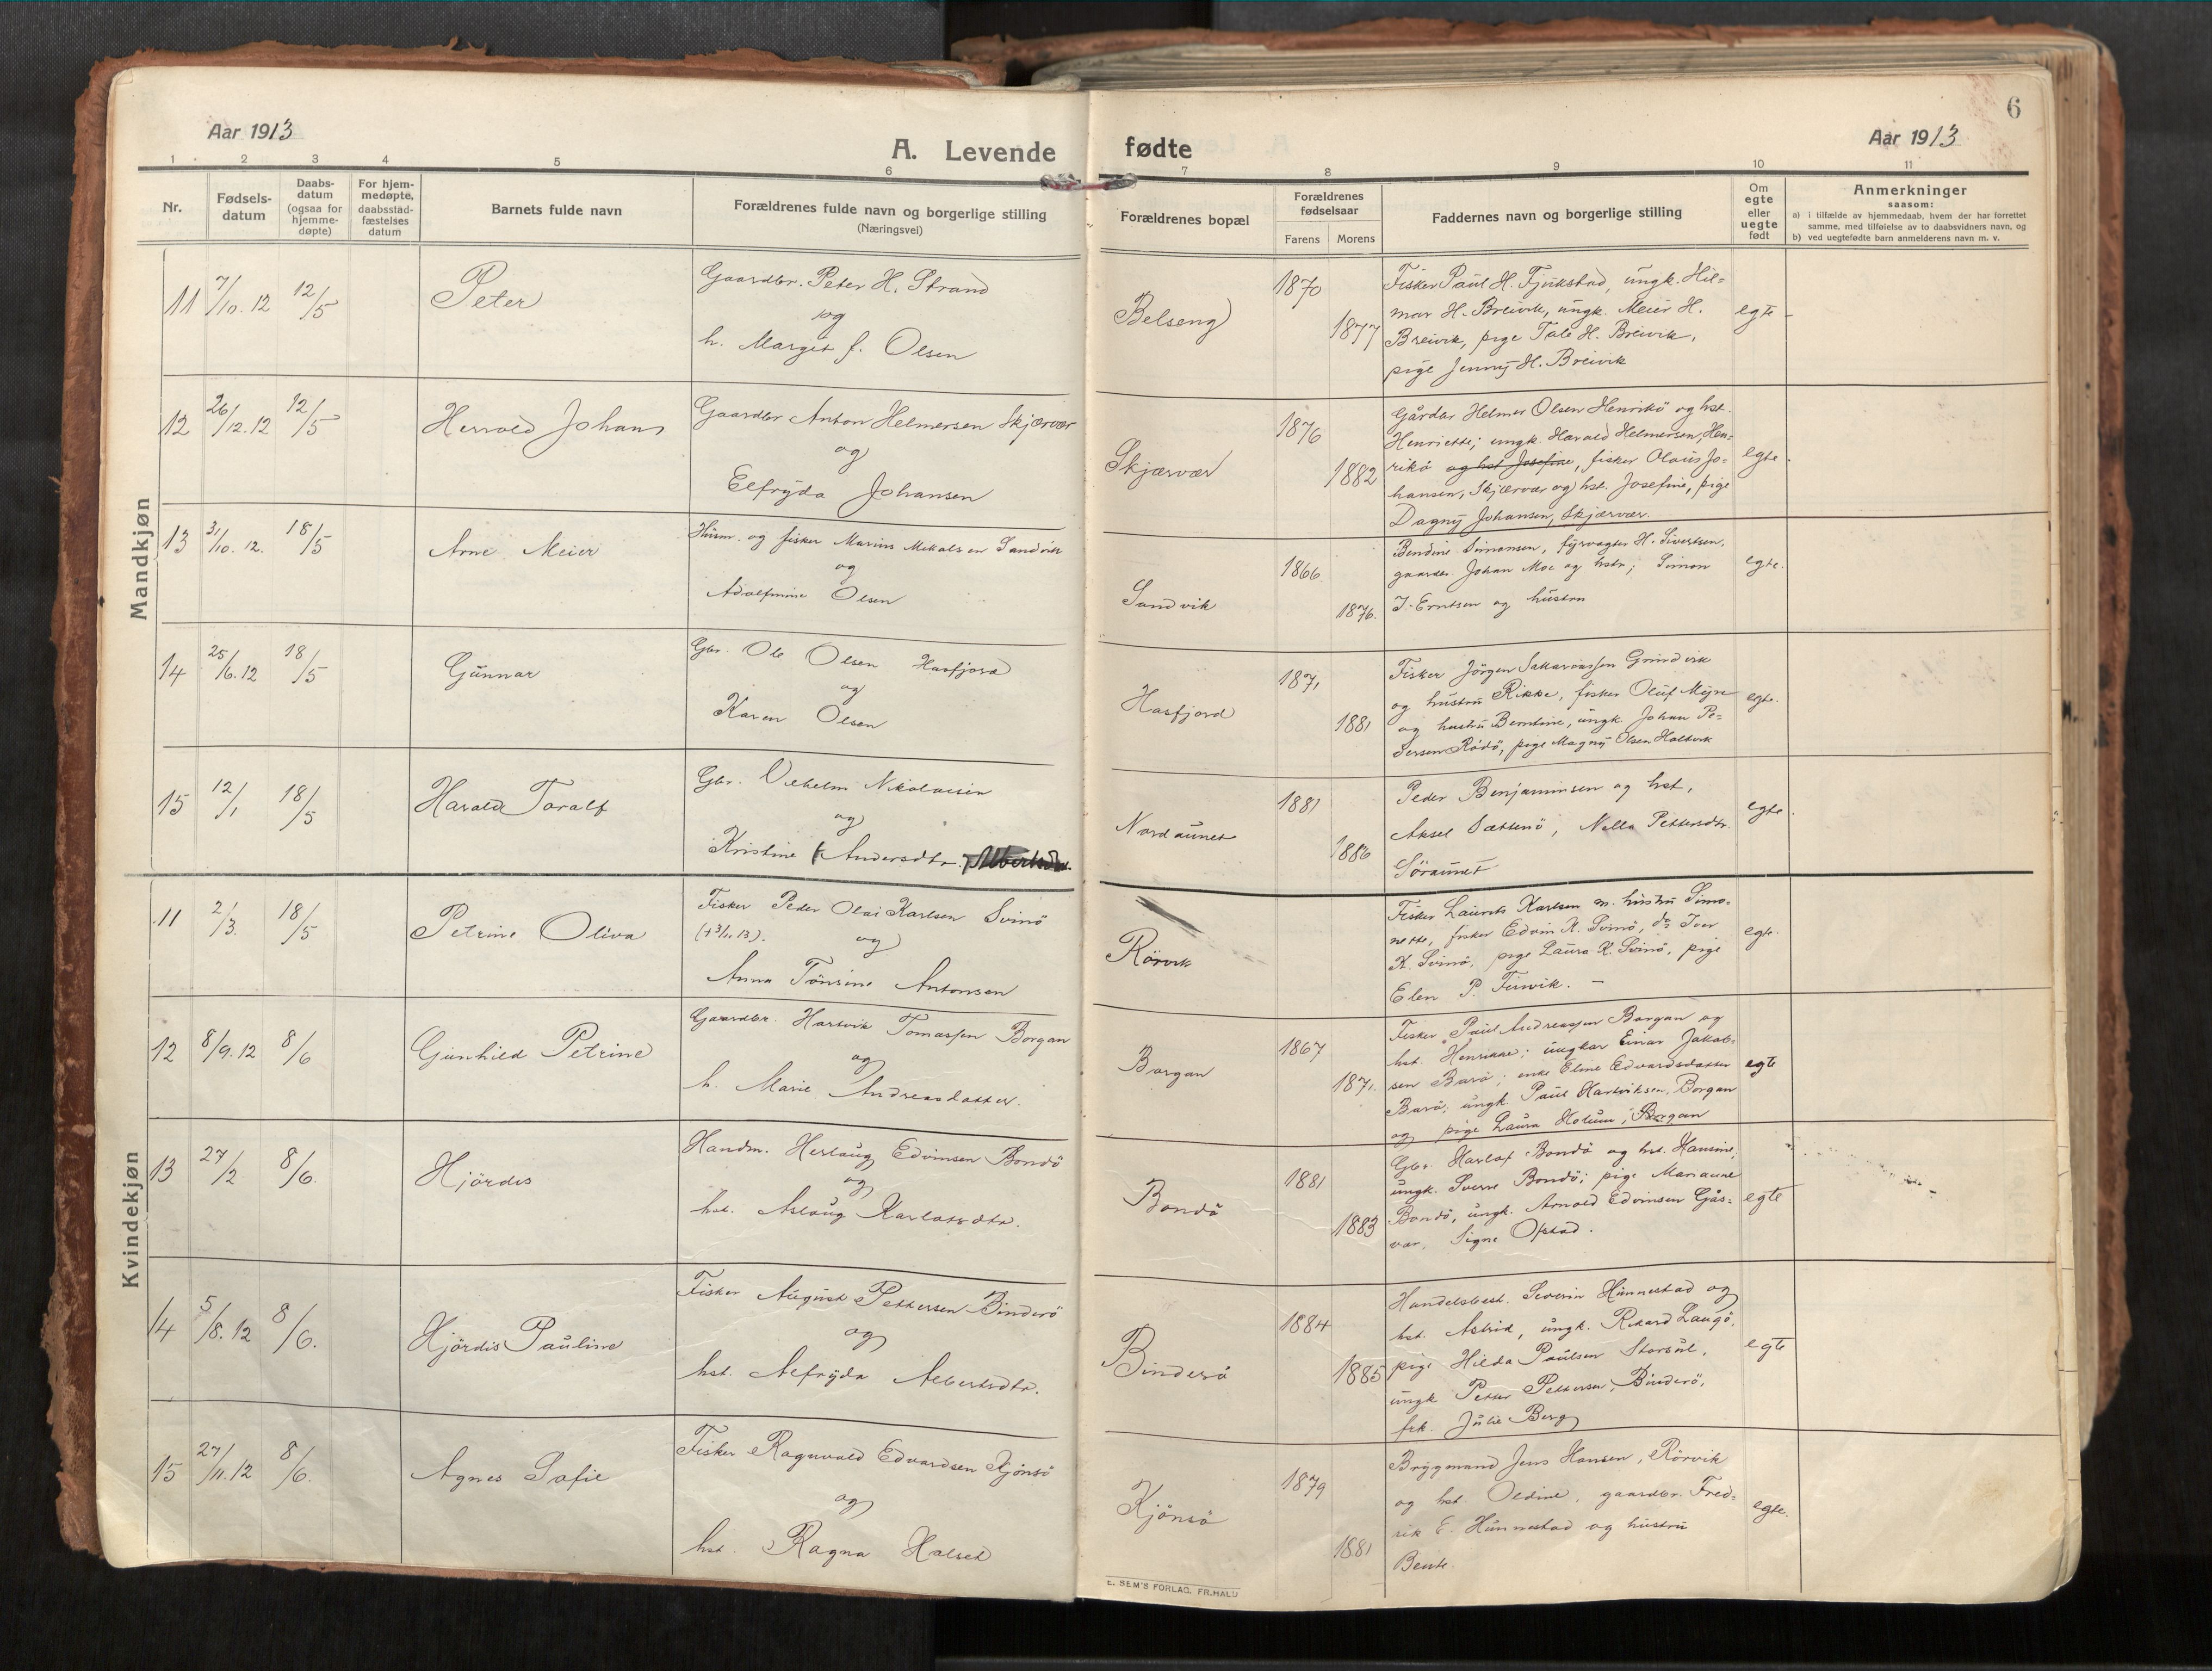 Aar 1913
A. Levende
fødte
Aar 1913
6
1 2 3 4 5 6 7 8 9 10 11
Nr.
Fødsels-
datum
Daabs-
datum
(ogsaa for
hjemme-
døpte)
For hjem-
medøpte,
daabsstad-
fæstelses
datum
Barnets fulde navn
Forældrenes fulde navn og borgerlige stilling
(Næringsvei)
Forældrenes bopæl
Forældrenes
fødselsaar
Farens Morens
Faddernes navn og borgerlige stilling
Om
egte
eller
uegte
født
Anmerkninger
saasom:
a) i tilfælde av hjemmedaab, hvem der har forrettet
samme, med tilføielse av to daabsvidners navn, og
b) ved uegtefødte barn anmelderens navn m. v.
Mandkjøn
11 7/10. 12 12/5 Peter
Gaardbr. Peter H. Strand
og
h. Margit f. Olsen
Belseng
1870
1877
Fisker Paul H. Fjukstad, ungk. Hil=
mar H. Breivik, ungk. Meier H.
Breivik, pige Tale H. Breivik,
pige Jenny H. Breivik
egte
12 26/12. 12 12/5 Herrold Johans
Gaardbr Anton Helmersen Skjærvær
og
Elfryda Johansen
Skjærvær
1876
1882
Gårdbr Helmer Olsen Henrikö og hst.
Henriette; ungk. Harald Helmersen, Hen=
rikö og hst Josefine, fisker Olaus Jo=
hansen, Skjærvær og hst. Josefine, pige
Dagny Johansen, Skjærvær.
egte.
13 31/10. 12. 18/5 Arne Meier
Husm. og fisker Marius Mikalsen Sandvik
og
Adolfmine Olsen
Sandvik
1866
1876.
Bendine Simonsen, fyrvogter H. Sivertsen,
gaardbr. Johan Moe og hstr; Simon
J. Erntsen og hustru
egte.
14 25/6. 12 18/5 Gunnar
Gbr. Ole Olsen Hasfjord
og
Karen Olsen
Hasfjord
1871
1881
Fisker Jörgen Sakariassen Grindvik
og hustru Rikke, fisker Oluf Myre
og hustru Berntine, ungk. Johan Pe=
dersen Rödö, pige Magny Olsen Holtvik
egte.
15 12/1 18/5 Harald Toralf
Gbr. Vilhelm Nikolaisen
og
Kristine (Andersdtr.)
Nordaunet
1881
1886
Peder Benjaminsen og hst,
Aksel Sættenö, Nella Pettersdtr.
Söraunet
egte.
Kvindekjøn
11 2/3. 18/5 Petrine Oliva
Fisker Peder Olai Karlsen Svinö
og
Anna Tönsine Antonsen
Rörvik
Fisker Laurits Karlsen m. hustru Simo=
nette, fisker Edvin K. Svinö, do Iver
K. Svinö, pige Laura K. Svinö, pige
Elen P. Finvik. –
egte.
12 8/9. 12 8/6 Gunhild Petrine
Gaardbr. Hartvik Tomassen Borgan
og
h. Marie Andreasdatter.
Borgan
1867
1871.
Fisker Paul Andreassen Borgan og
hst. Henrikke; ungkar Einar Jakob=
sen Barö; enke Eline Edvardsdatter
Barö; ungk. Paul Hartviksen, Borgan
og pige Laura Holum, Borgan
egte
13 27/2 8/6. Hjördis
Handm. Herlaug Edvinsen Bondö
og
hst. Aslaug Karlotsdtr.
Bondö
1881
1883
Gbr. Karlot Bondö og hst. Hansine,
ungk. Sverre Bondö; pige Marianne
Bondö, ungk. Arnold Edvinsen Gås=
var, Signe Ofstad.
egte
14 5/8. 12 8/6. Hjördis Pauline
Fisker August Pettersen Binderö
og
hst. Alfryda Albertsdtr.
Binderö
1884
1885
Handelsbest. Severin Hunnestad og
hst. Astrid, ungk. Rikard Laugö,
pige Hilda Paulsen Storsul,
ungk Petter Pettersen, Binderö,
frk. Julie Berg
egte
15 27/11. 12 8/6. Agnes Sofie
Fisker Ragnvald Edvardsen Kjönsö
og
hst. Ragna Halset
Kjönsö
1879
1881
Bryggmand Jens Hansen, Rörvik
og hst. Oldine, gaardbr. Fred=
rik E. Hunnestad og hustru
Bente.
egte.
E. SEM'S FORLAG, FR.HALD